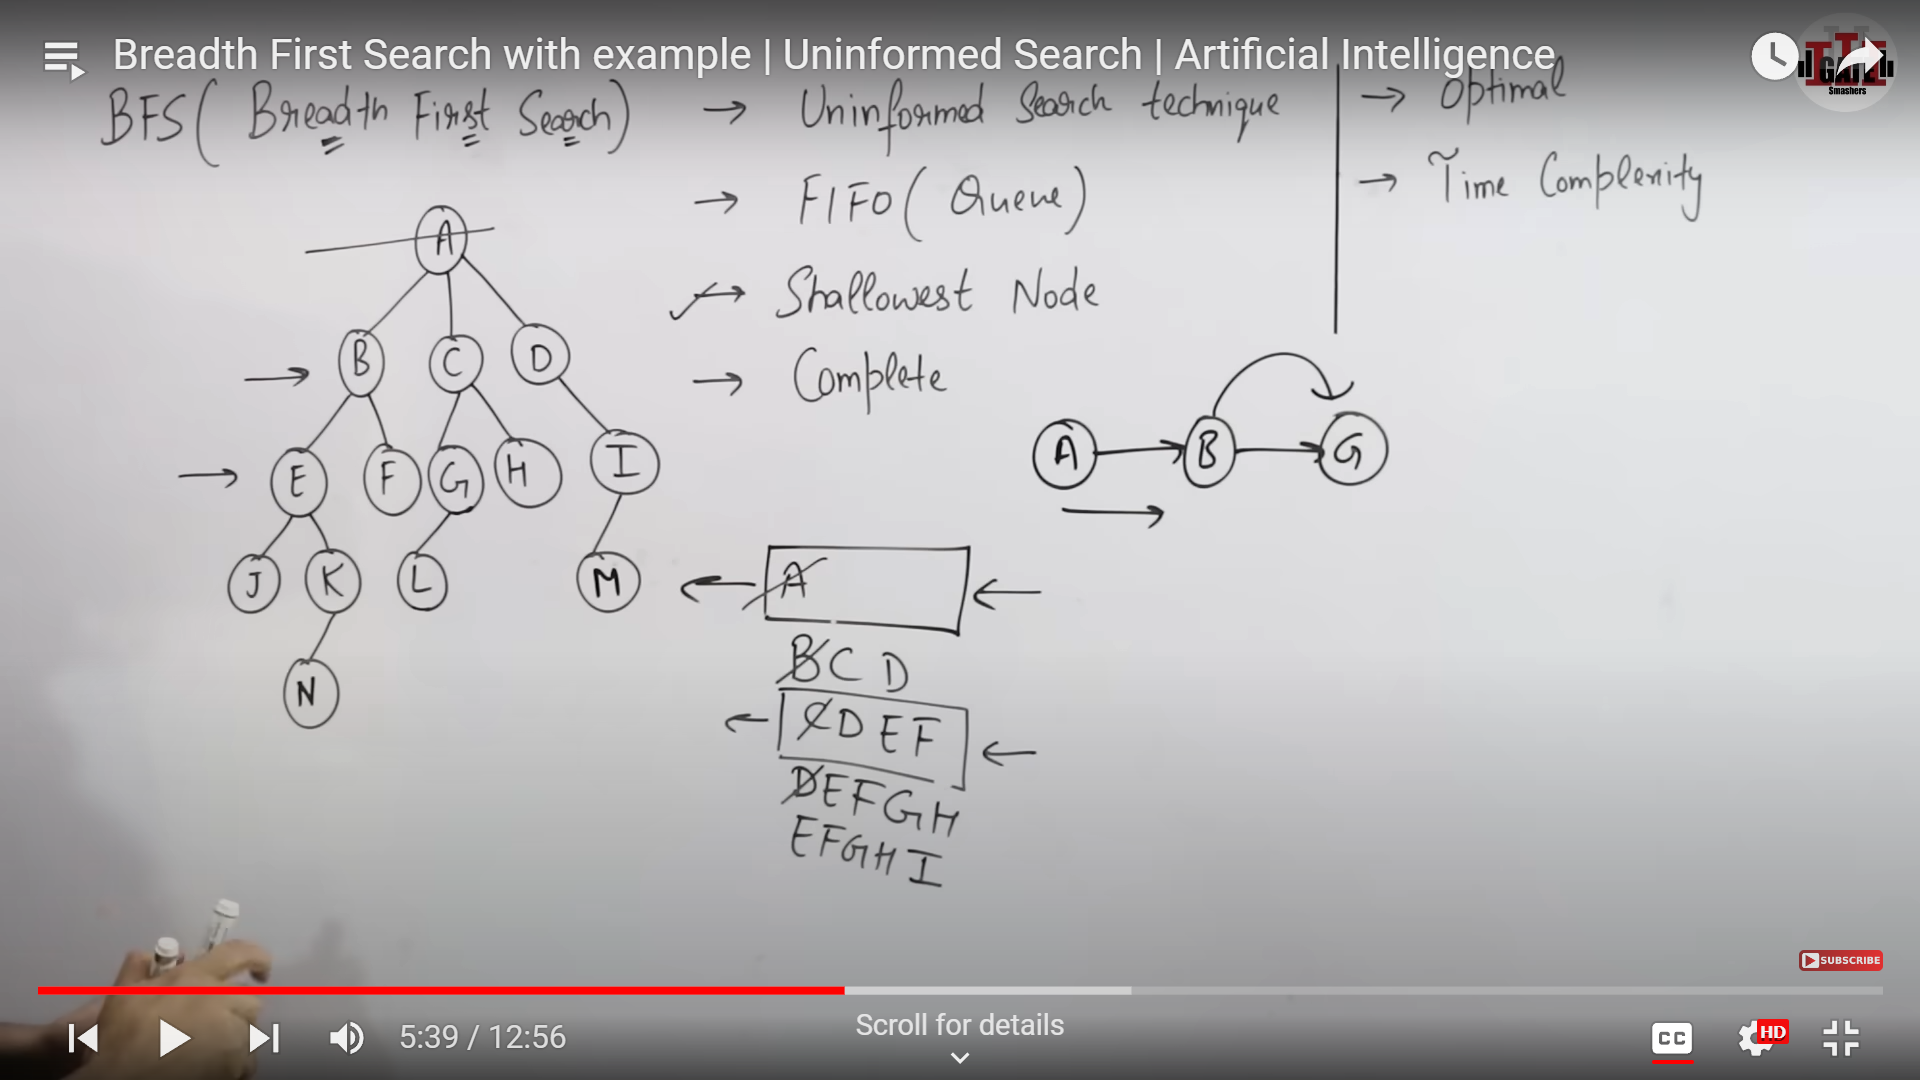 Breadth First Search with example | Uninformed Search | Artificial Intelligence
GATE
Smashers
BFS( Breadth First Search) → Uninformed Search technique
→ FIFO( Queue)
→ Shallowest Node
→ Complete
→ Optimal
→ Time Complexity
A
B C D
E F G H I
J K L M
N
A → B → G
A
B C D
C D E F
D E F G H
E F G H I
SUBSCRIBE
5:39 / 12:56
Scroll for details
CC
HD